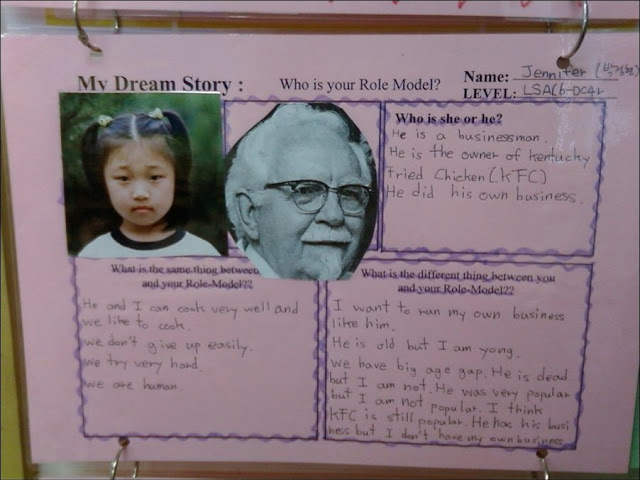 My Dream Story :
Who is your Role Model?
Name: Jennifer
LEVEL:
Who is she or he?
He is a businessman.
He is the owner of Kentucky
Fried Chicken (KFC)
He did his own business.
What is the same thing between
and your Role-Model??
He and I can cook very well and
we like to cook.
we don't give up easily.
we try very hard.
we are human.
What is the different thing between you
and your Role-Model??
I want to run my own business
like him.
He is old but I am yong.
we have big age gap. He is dead
but I am not. He was very popular
but I am not popular. I think
KFC is still popular. He has his busi
ness but I don't have my own business.